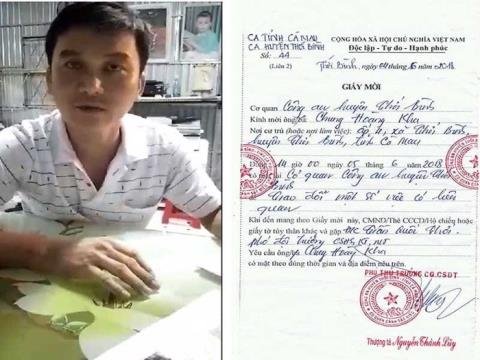 CA TỈNH CÀ MAU
CA HUYỆN THỚI BÌNH
Số: 44
(Liên 2)
CỘNG HÒA XÃ HỘI CHỦ NGHĨA VIỆT NAM
Độc lập - Tự do - Hạnh phúc
Thới Bình, ngày 04 tháng 6 năm 2018
GIẤY MỜI
Cơ quan Công an huyện Thới Bình
Kính mời ông/bà Chung Hoàng Kha
Nơi cư trú (hoặc nơi làm việc): ấp xã Thới Bình,
huyện Thới Bình, tỉnh Cà Mau
Đúng 14 giờ 00 ngày 05 tháng 6 năm 2018
tại Cơ quan Công an huyện Thới
Bình
Trao đổi một số việc có liên
quan
Khi đến mang theo Giấy mời này, CMND/Thẻ CCCD/Hộ chiếu hoặc
giấy tờ tùy thân khác và gặp ĐC Trần
phó đội trưởng CSHS, KT, MT
Yêu cầu ông/bà Chung Hoàng Kha
có mặt theo đúng thời gian và địa điểm nêu trên.
PHÓ THỦ TRƯỞNG CQ.CSĐT
Thượng tá Nguyễn Thành Lũy